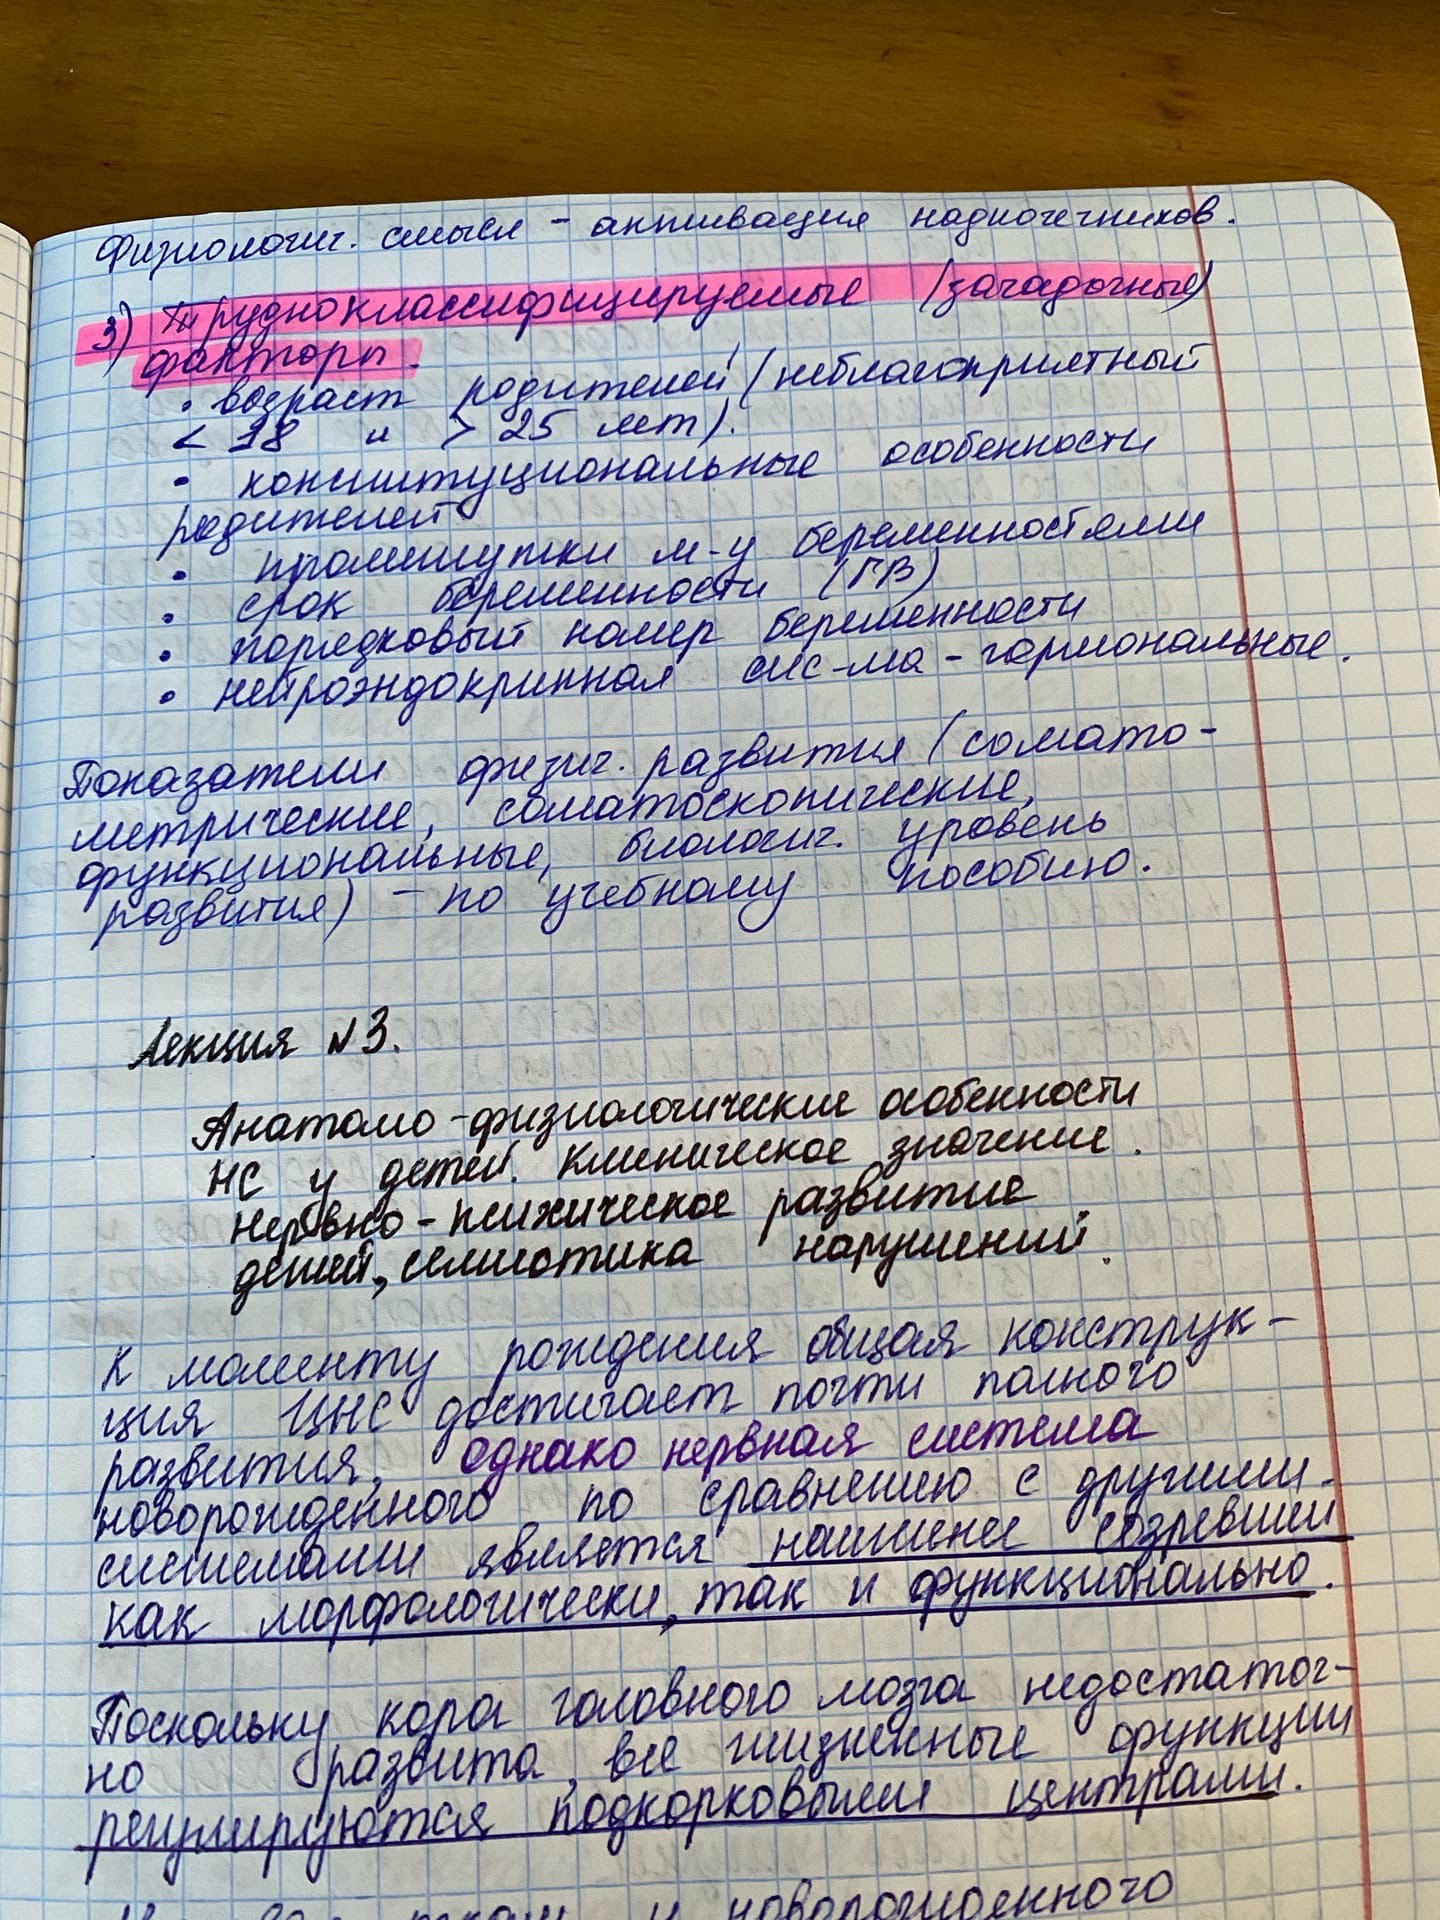 Физиологич. смысл - активация надпочечников.
3) Трудноклассифицируемые (загадочные)
факторы.
• возраст родителей (неблагоприятный
< 18 и > 25 лет).
• конституциональные особенности
родителей
• промежутки м-у беременностями
• срок беременности (ГВ)
• порядковый номер беременности
• нейроэндокринная сис-ма - гормональные.
Показатели физич. развития (сомато-
метрические, соматоскопические,
функциональные, биологич. уровень
развития) - по учебному пособию.
Лекция №3.
Анатомо-физиологические особенности
НС у детей. Клиническое значение.
Нервно-психическое развитие
детей, семиотика нарушений.
К моменту рождения общая конструк-
ция ЦНС достигает почти полного
развития, однако нервная система
новорожденного по сравнению с другими
системами является наименее созревшей
как морфологически, так и функционально.
Поскольку кора головного мозга недостаточ-
но развита, все жизненные функции
регулируются подкорковыми центрами.
новорожденного